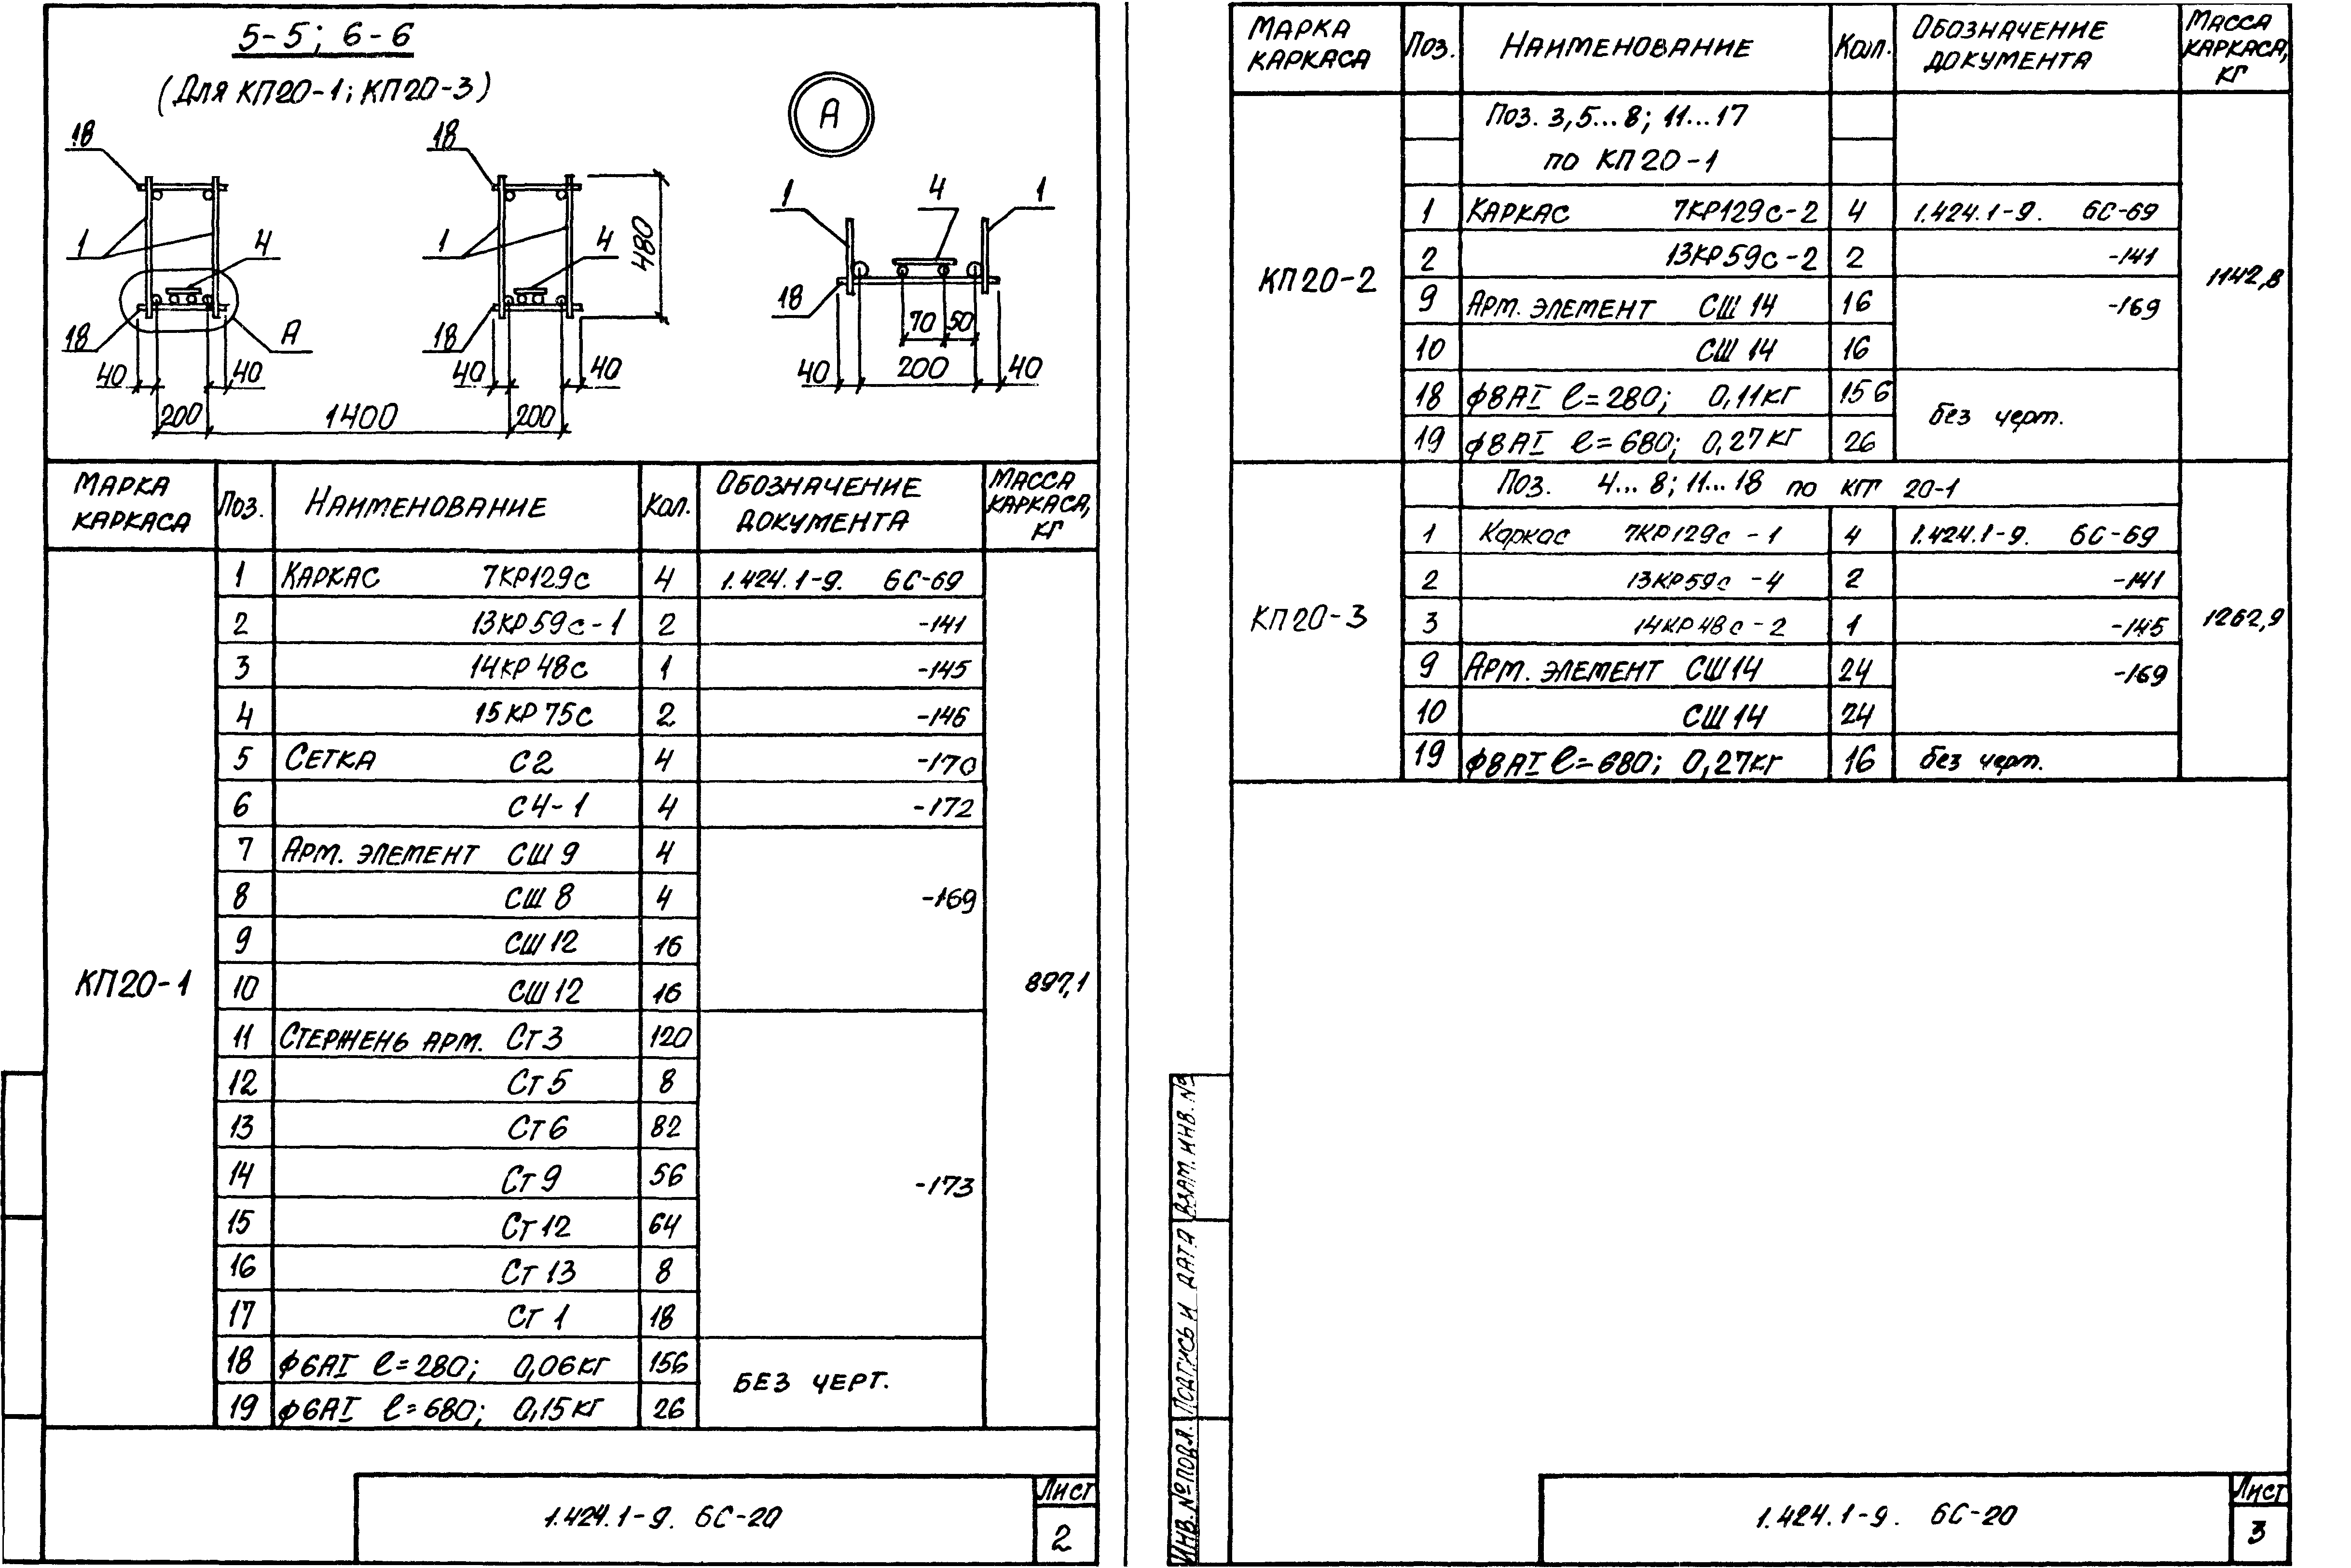 5-5; 6-6
(Для КП20-1; КП20-3)
А
18
18
1
4
1
1
4
1
4
480
18
А
18
18
70
50
40
40
40
40
40
200
40
200
1400
200
МАРКА КАРКАСА
Поз.
НАИМЕНОВАНИЕ
Кол.
ОБОЗНАЧЕНИЕ ДОКУМЕНТА
МАССА КАРКАСА, КГ
КП20-1
897,1
1 КАРКАС 7КР129с 4 1.424.1-9. 6С-69
2 13КР59с-1 2 -141
3 14КР48с 1 -145
4 15КР75с 2 -146
5 СЕТКА С2 4 -170
6 С4-1 4 -172
7 АРМ. ЭЛЕМЕНТ СШ9 4
8 СШ8 4 -169
9 СШ12 16
10 СШ12 16
11 СТЕРЖЕНЬ АРМ. Ст3 120
12 Ст5 8
13 Ст6 82
14 Ст9 56 -173
15 Ст12 64
16 Ст13 8
17 Ст1 18
18 ϕ6АI ℓ=280; 0,06кг 156
БЕЗ ЧЕРТ.
19 ϕ6АI ℓ=680; 0,15кг 26
1.424.1-9. 6С-20
Лист
2
МАРКА КАРКАСА
Поз.
НАИМЕНОВАНИЕ
Кол.
ОБОЗНАЧЕНИЕ ДОКУМЕНТА
МАССА КАРКАСА, КГ
Поз. 3,5...8; 11...17
по КП20-1
КП20-2
1142,8
1 КАРКАС 7КР129с-2 4 1.424.1-9. 6С-69
2 13КР59с-2 2 -141
9 АРМ. ЭЛЕМЕНТ СШ14 16 -169
10 СШ14 16
18 ϕ8АI ℓ=280; 0,11кг 156
без черт.
19 ϕ8АI ℓ=680; 0,27кг 26
Поз. 4...8; 11...18 по КП 20-1
КП20-3
1262,9
1 Каркас 7КР129с-1 4 1.424.1-9. 6С-69
2 13КР59с-4 2 -141
3 14КР48с-2 1 -145
9 АРМ. ЭЛЕМЕНТ СШ14 24 -169
10 СШ14 24
19 ϕ8АI ℓ=680; 0,27кг 16 без черт.
ИНВ. № ПОДЛ.
ПОДПИСЬ И ДАТА
ВЗАМ. ИНВ. №
1.424.1-9. 6С-20
Лист
3